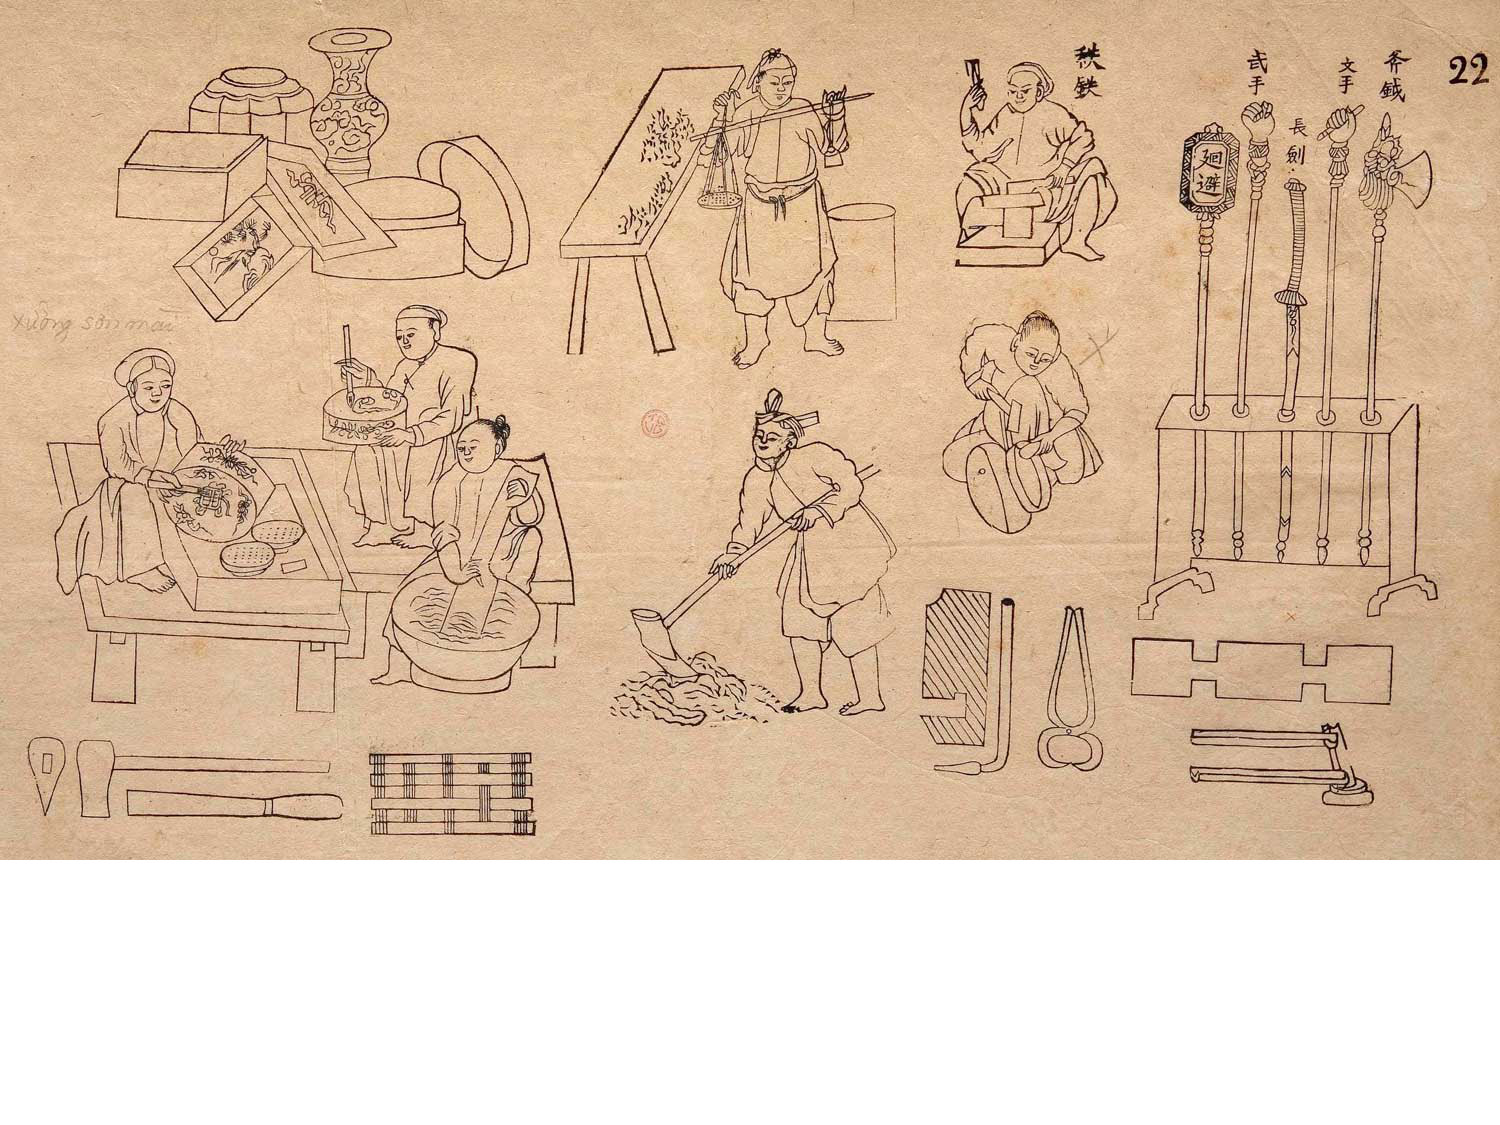 22
斧鉞
文手
長劍
武手
廻避
秩鉄
xưởng sơn mài